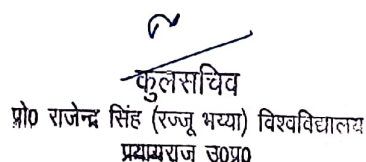 कुलसचिव
प्रो० राजेन्द्र सिंह (रज्जू भय्या) विश्वविद्यालय
प्रयागराज उ०प्र०